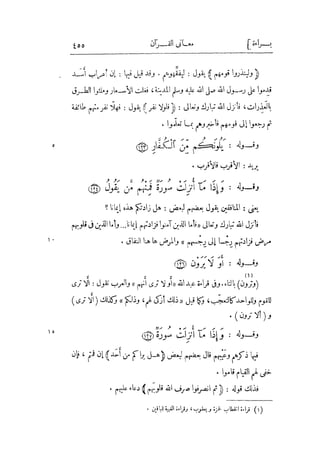 بـــراءة ] معــانى القـــرآن ٤٥٥
﴿ ولينذروا قومهم ﴾ يقول : ليفقِّهوهم . وقد قيل فيها : إن أعراب أســد
قدِموا على رســول الله صلى الله عليه وسلم المدينة ، فغلت الأسـعار وملئوا الطــرق
بالعَذِرات ، فأنزل الله تبارك وتعالى : ﴿ فلولا نفر ﴾ يقول : فهلّا نفر منهم طائفة
ثم رجعوا إلى قومهم فأخبروهم بما تعلّموا .
وقـــوله : يَلُونَكُم مِّنَ ٱلْكُفَّارِ (١٢٣) ٥
يريد : الأقرب فالأقرب .
وقـــوله : وَإِذَا مَآ أُنزِلَتْ سُورَةٌ فَمِنْهُم مَّن يَقُولُ (١٢٤)
يعنى : المنافقين يقول بعضهم لبعض : هل زادتكم هذه إيمانا ؟
فأنزل الله تبارك وتعالى « فأما الذين آمنوا فزادتهم إيمانا … وأما الذين فى قلوبهم
مرض فزادتهم رجْسا إلى رِجْسهم » والمرض ها هنا النفاق . ١٠
وقـــوله : أَوَ لَا يَرَوْنَ (١٢٦)
(ترون) (١) بالتاء . وفى قراءة عبد الله « أو لا ترى أنهم » والعرب تقول : ألا ترى
للقوم وللواحد كالتعجّب ، وكما قيل « ذلك أزكى لهم ، وذلكم » وكذلك ( ألا ترى )
و ( ألا ترون ) .
وقـــوله : وَإِذَا مَآ أُنزِلَتْ سُورَةٌ (١٢٧) ١٥
فيها ذكرهم وعَيْبهم قال بعضهم لبعض ﴿ هــل يراكم من أحد ﴾ إن قمتم ، فإن
خفى لهم القيام قاموا .
فذلك قوله : ﴿ ثم انصرفوا صرف الله قلوبهم ﴾ دعاء عليهم .
(١) قراءة الخطاب لحمزة ويعقوب ، وقراءة الغيبة للباقين .